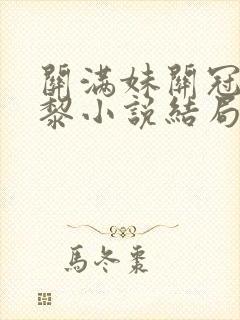 關滿妹關冠
黎小說結局
馬冬棗